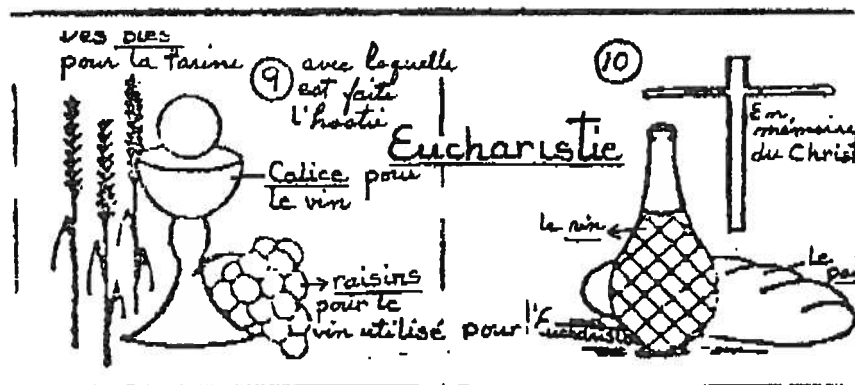 Des blés
pour la farine
9
avec laquelle
est faite
l'hostie
Eucharistie
Calice pour
le vin
raisins
pour le
vin utilisé pour l'Eucharistie
10
En
mémoire
du Christ
le vin
Le